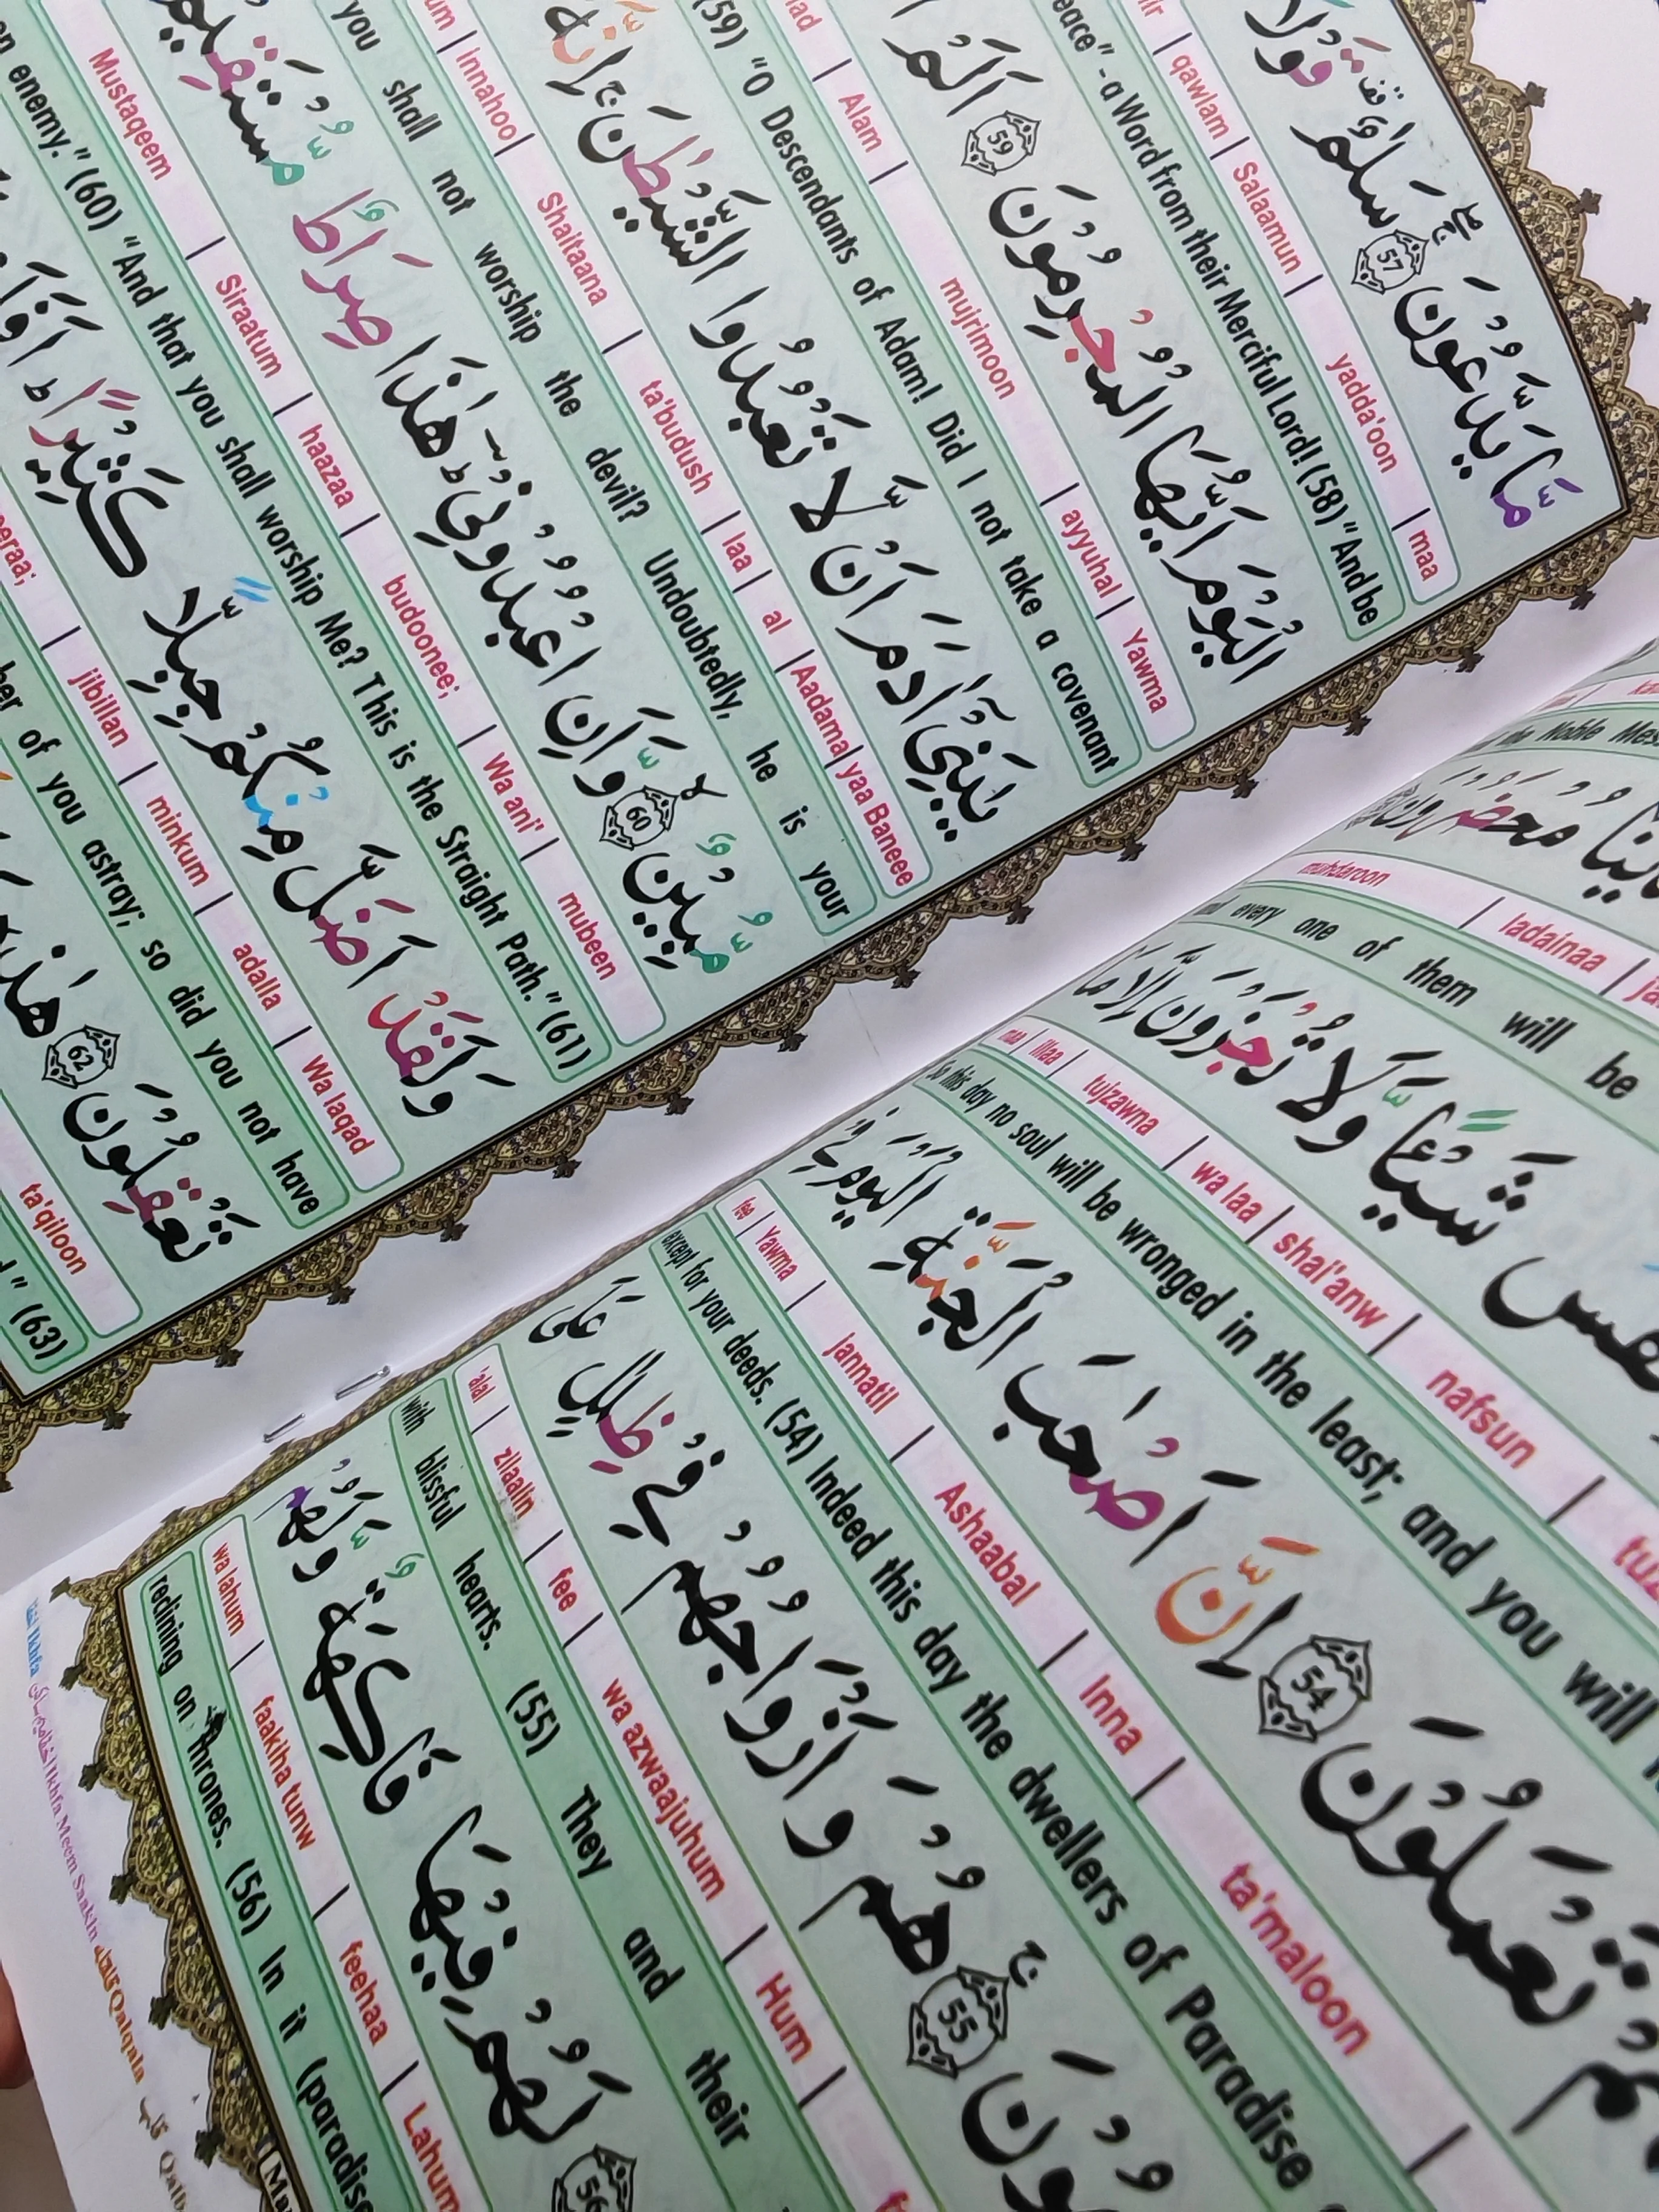 muhdaroon | ladainaa
every one of them will be
شَيْـًٔا وَّلَا تُجْزَوْنَ اِلَّا مَا
nafsun | shai'anw | wa laa | tujzawna | illaa | maa
So this day no soul will be wronged in the least; and you will
تَعْمَلُوْنَ 54 اِنَّ اَصْحٰبَ الْجَنَّةِ الْيَوْمَ فِيْ
ta'maloon | Inna | Ashaabal | Jannatil | Yawma | fee
except for your deeds. (54) Indeed this day the dwellers of Paradise
55 هُمْ وَاَزْوَاجُهُمْ فِيْ ظِلٰلٍ عَلَى
Hum | wa azwaajuhum | fee | zilaalin | 'alal
with blissful hearts. (55) They and their
56 لَهُمْ فِيْهَا فَاكِهَةٌ وَّلَهُمْ
Lahum | feehaa | faakiha tunw | wa lahum
reclining on thrones. (56) In it (paradise
Ikhfa Meem Saakin Qalqala
مَّا يَدَّعُوْنَ 57 سَلٰمٌ قَوْلًا
maa | yadda'oon | Salaamun | qawlam
eace" - a Word from their Merciful Lord! (58) "And be
الْيَوْمَ اَيُّهَا الْمُجْرِمُوْنَ 59 اَلَمْ
Yawma | ayyuhal | mujrimoon | Alam
(59) "O Descendants of Adam! Did I not take a covenant
يٰبَنِيْٓ اٰدَمَ اَنْ لَّا تَعْبُدُوا الشَّيْطٰنَ ۚ اِنَّهٗ
yaa Baneee | Aadama | al | laa | ta'budush | Shaitaana | Innahoo
you shall not worship the devil? Undoubtedly, he is your
مُّبِيْنٌ 60 وَّاَنِ اعْبُدُوْنِيْ ؕ هٰذَا صِرَاطٌ مُّسْتَقِيْمٌ
mubeen | Wa ani' | budoonee; | haazaa | Siraatum | Mustaqeem
enemy." (60) "And that you shall worship Me? This is the Straight Path." (61)
وَلَقَدْ اَضَلَّ مِنْكُمْ جِبِلًّا كَثِيْرًا ؕ
Wa laqad | adalla | minkum | jibillan
of you astray; so did you not have
تَعْقِلُوْنَ 62 هٰذِهٖ
ta'qiloon
(63)